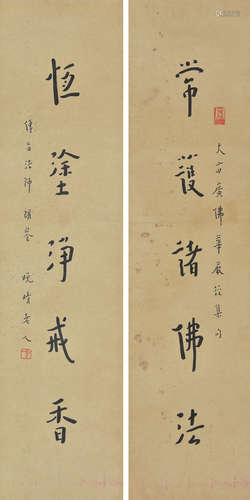 常護諸佛法
大方廣佛華嚴經集句
恆塗淨戒香
傳立法師 明鑒
晚晴老人